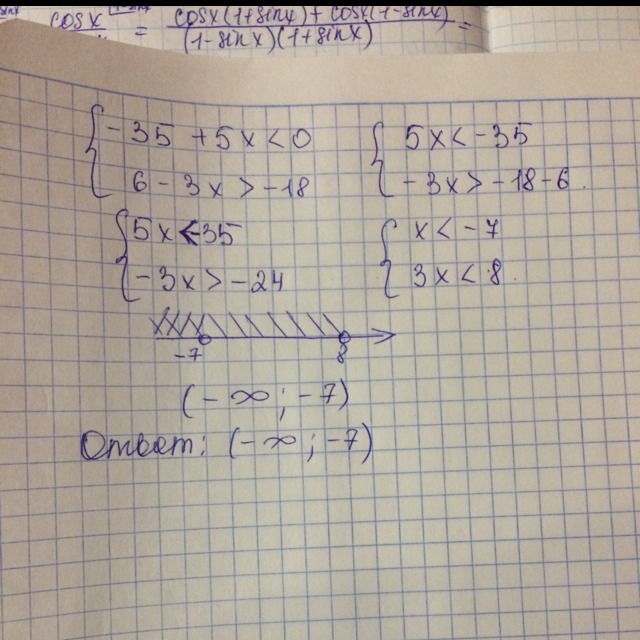 cosx = cosx(1+sinx) + cosx(1-sinx) =
(1-sinx)(1+sinx)
{ -35 + 5x < 0 { 5x < -35
6 - 3x > -18 -3x > -18-6.
{ 5x < 35 { x < -7
-3x > -24 3x < 8.
-7 8
(-∞; -7)
Ответ: (-∞; -7)